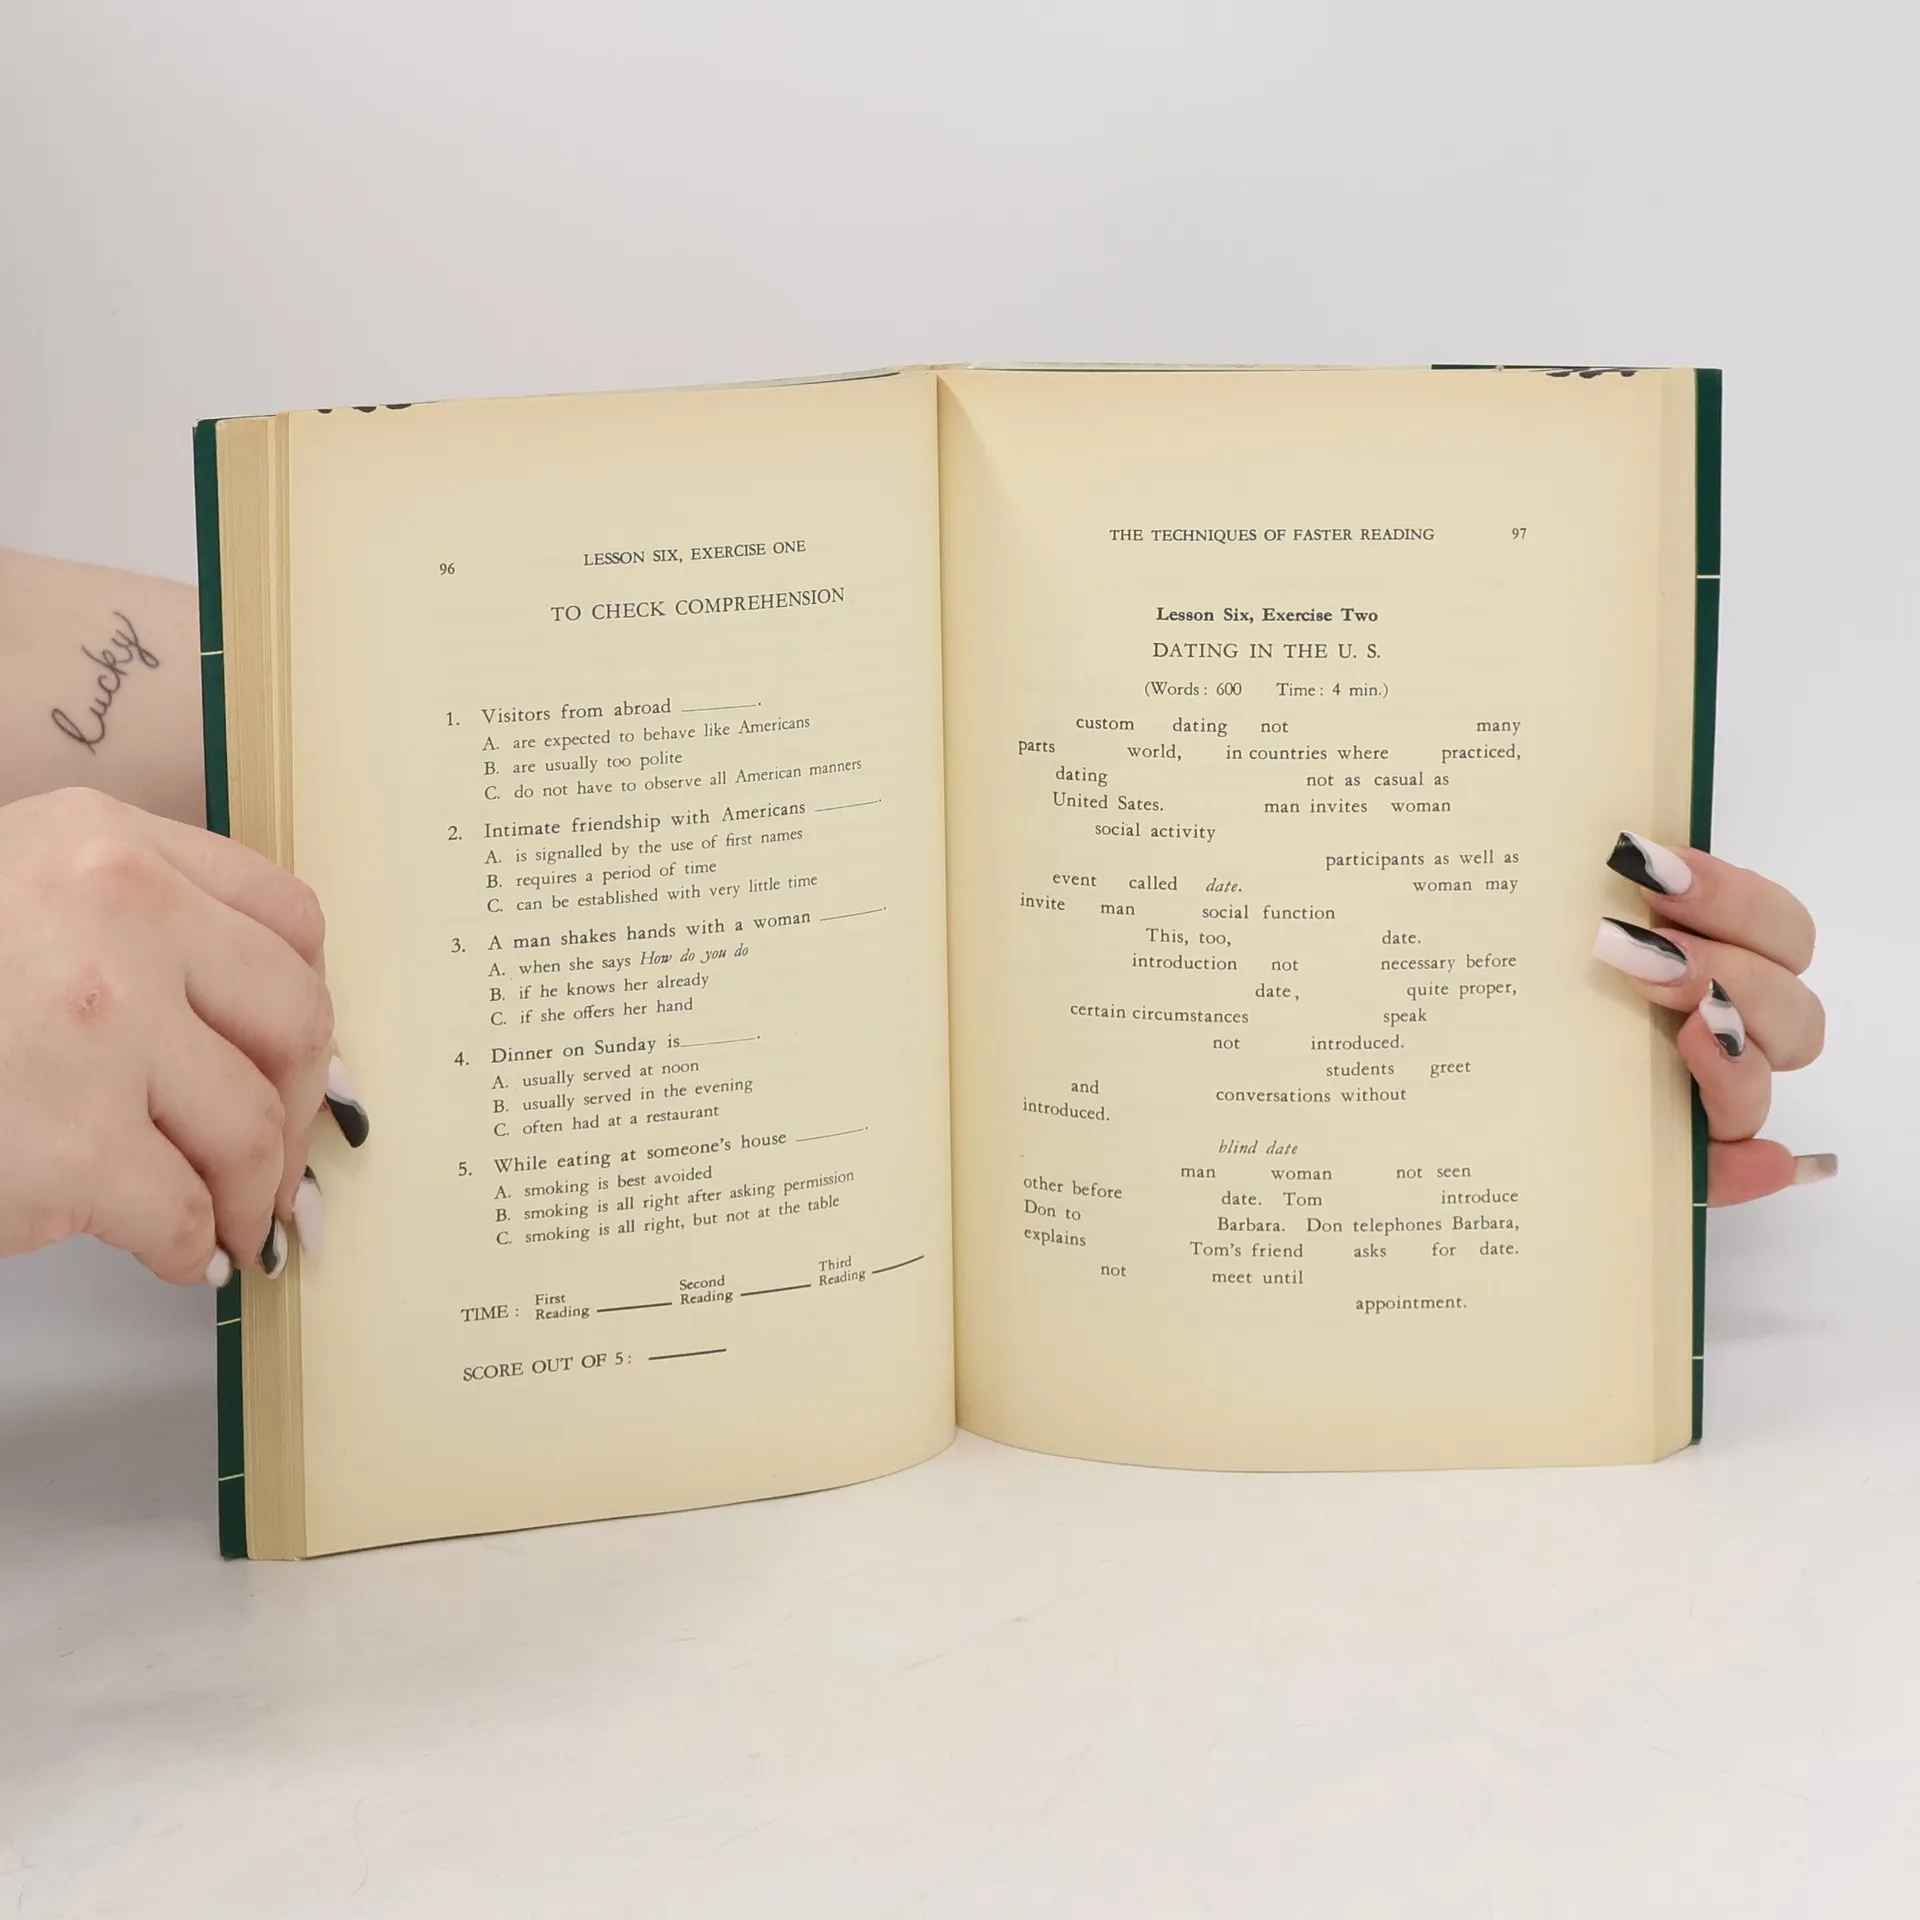 lucky
96 LESSON SIX, EXERCISE ONE
TO CHECK COMPREHENSION
1. Visitors from abroad ________.
A. are expected to behave like Americans
B. are usually too polite
C. do not have to observe all American manners
2. Intimate friendship with Americans ________.
A. is signalled by the use of first names
B. requires a period of time
C. can be established with very little time
3. A man shakes hands with a woman ________.
A. when she says How do you do
B. if he knows her already
C. if she offers her hand
4. Dinner on Sunday is________.
A. usually served at noon
B. usually served in the evening
C. often had at a restaurant
5. While eating at someone's house ________.
A. smoking is best avoided
B. smoking is all right after asking permission
C. smoking is all right, but not at the table
TIME : First Reading ________ Second Reading ________ Third Reading ________
SCORE OUT OF 5 : ________
THE TECHNIQUES OF FASTER READING 97
Lesson Six, Exercise Two
DATING IN THE U. S.
(Words : 600 Time : 4 min.)
custom dating not many
parts world, in countries where practiced,
dating not as casual as
United Sates. man invites woman
social activity
participants as well as
event called date. woman may
invite man social function
This, too, date.
introduction not necessary before
date, quite proper,
certain circumstances speak
not introduced.
students greet
and conversations without
introduced.
blind date
man woman not seen
other before date. Tom introduce
Don to Barbara. Don telephones Barbara,
explains Tom's friend asks for date.
not meet until
appointment.